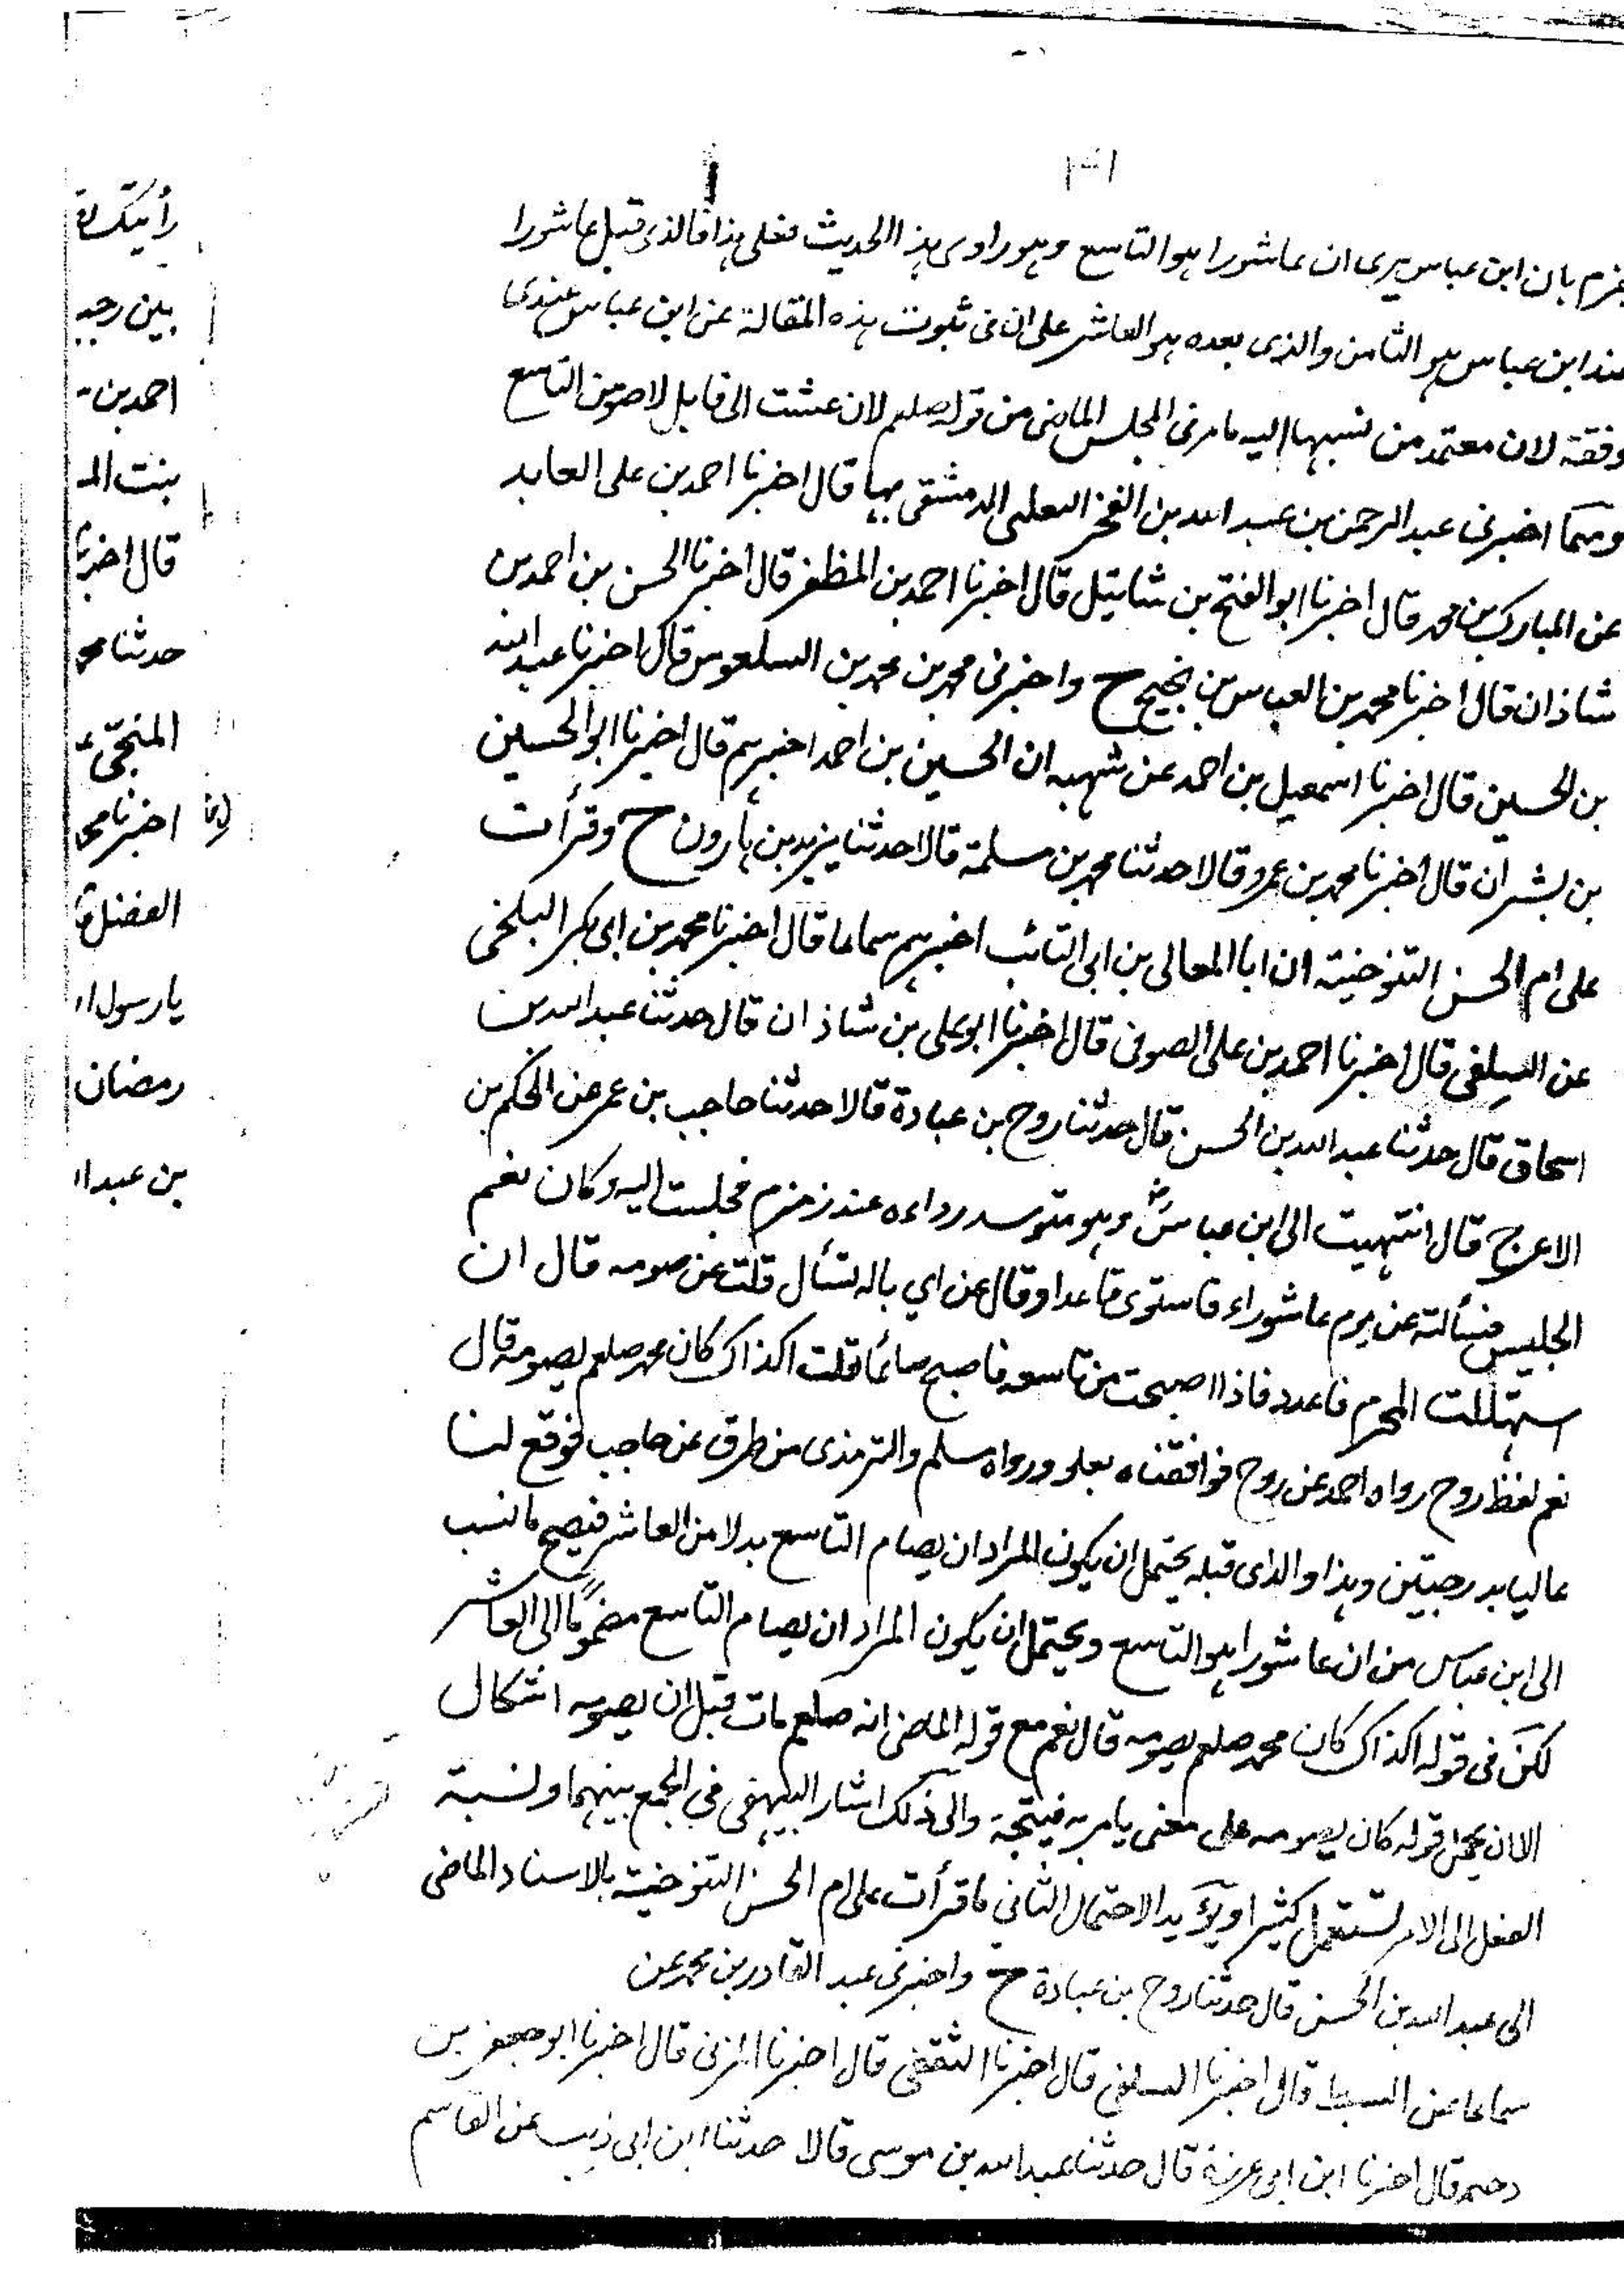 ١٣١
جزم بان ابن عباس يرى ان عاشورا هو التاسع وهو راوى هذا الحديث فعلى هذا فالذى قبل عاشورا
عند ابن عباس هو الثامن والذى بعده هو العاشر على ان فى ثبوت هذه المقالة عن ابن عباس عندى
وقفة لان معتمد من نسبها اليه ما مر فى المجلس الماضى من قوله صلعم لان عشت الى قابل لاصومن التاسع
ومما اخبرنى عبد الرحمن بن عبد الله بن الفخر البعلى الدمشقى بها قال اخبرنا احمد بن على العابد
عن المبارك بن محمد قال اخبرنا ابو الفتح بن شاتيل قال اخبرنا احمد بن المظفر قال اخبرنا الحسن بن احمد بن
شاذان قال اخبرنا محمد بن العباس بن نجيح ح واخبرنى محمد بن محمد بن السلعوس قال اخبرنا عبد الله
بن الحسين قال اخبرنا اسمعيل بن احمد عن شهده ان الحسين بن احمد اخبرهم قال اخبرنا ابو الحسين
بن بشران قال اخبرنا محمد بن عمرو قالا حدثنا محمد بن مسلمة قالا حدثنا يزيد بن هارون ح وقرأت
على ام الحسن التنوخية ان ابا المعالى بن ابى التائب اخبرهم سماعا قال اخبرنا محمد بن ابى بكر البلخى
عن السلفى قال اخبرنا احمد بن على الصوفى قال اخبرنا ابو على بن شاذان قال حدثنا عبد الله بن
اسحاق قال حدثنا عبد الله بن الحسن قال حدثنا روح بن عبادة قالا حدثنا حاجب بن عمر عن الحكم بن
الاعرج قال انتهيت الى ابن عباس وهو متوسد رداءه عند زمزم فجلست اليه وكان نعم
الجليس فسألته عن يوم عاشوراء فاستوى قاعدا وقال عن اي باله تسأل قلت عن صومه قال ان
استهللت المحرم فاعدد فاذا اصبحت من تاسعه فاصبح صائما قلت اكذاك كان محمد صلعم يصومه قال
نعم لفظ روح رواه احمد عن روح فوافقناه بعلو ورواه مسلم والترمذى من طرق عن حاجب فوقع لنا
عاليا بدرجتين وهذا والذى قبله يحتمل ان يكون المراد ان يصام التاسع بدلا من العاشر فيصح ما نسب
الى ابن عباس من ان عاشورا هو التاسع ويحتمل ان يكون المراد ان يصام التاسع مضموًما الى العاشر
لكن فى قوله اكذاك كان محمد صلعم يصومه قال نعم مع قوله الماضى انه صلعم مات قبل ان يصومه اشكال
الا ان يحمل قوله كان يصومه على معنى يامر به فيتجه والى ذلك اشار البيهقى فى الجمع بينهما ونسبة
الفعل الى الامر تستعمل كثيرا ويؤيد الاحتمال الثانى ما قرأت على ام الحسن التنوخية بالاسناد الماضى
الى عبد الله بن الحسن قال حدثنا روح بن عبادة ح واخبرنى عبد القادر بن محمد عن
سماعا عن السبط قال اخبرنا السلفى قال اخبرنا الثقفى قال اخبرنا المزنى قال اخبرنا ابو جعفر بن
دحيم قال اخبرنا ابن ابى غرزة قال حدثنا عبيد الله بن موسى قالا حدثنا ابن ابى ذيب عن القاسم
رأيتك
بين رجب
احمد بن
بنت
قال اخبرنا
حدثنا
المنجى
اخبرنا
الفضل
يا رسول
رمضان
بن عبد